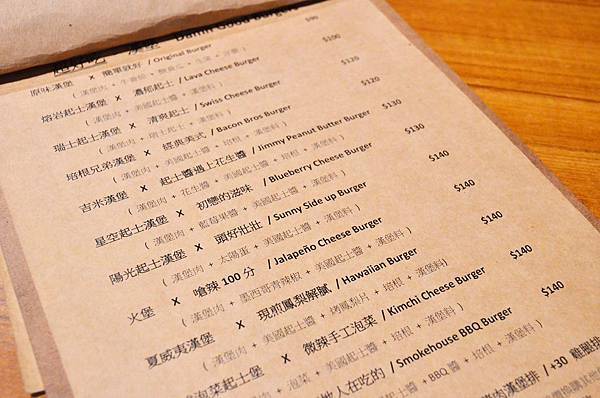 漢堡 Damn Good Burger
原味漢堡 x 簡單就好 / Original Burger $90
( 漢堡肉 + 生菜 + 洋蔥 )
熔岩起士漢堡 x 濃郁起士 / Lava Cheese Burger $100
( 漢堡肉 + 美國起士醬 + 漢堡料 )
瑞士起士漢堡 x 清爽起士 / Swiss Cheese Burger $120
( 漢堡肉 + 瑞士起士 + 漢堡料 )
培根兄弟漢堡 x 經典美式 / Bacon Bros Burger $120
( 漢堡肉 + 美國起士醬 + 培根 + 漢堡料 )
吉米漢堡 x 起士醬遇上花生醬 / Jimmy Peanut Butter Burger $130
( 漢堡肉 + 花生醬 + 美國起士醬 + 培根 + 漢堡料 )
星空起士漢堡 x 初戀的滋味 / Blueberry Cheese Burger $130
( 漢堡肉 + 藍莓果醬 + 美國起士醬 + 漢堡料 )
陽光起士漢堡 x 頭好壯壯 / Sunny Side up Burger $140
( 漢堡肉 + 太陽蛋 + 美國起士醬 + 漢堡料 )
火堡 x 嗆辣 100 分 / Jalapeño Cheese Burger $140
( 漢堡肉 + 墨西哥青辣椒 + 美國起士醬 + 漢堡料 )
夏威夷漢堡 x 現煎鳳梨解膩 / Hawaiian Burger $140
( 漢堡肉 + 美國起士醬 + 烤鳳梨片 + 培根 + 漢堡料 )
泡菜起士堡 x 微辣手工泡菜 / Kimchi Cheese Burger $140
+ 泡菜 + 美國起士醬 + 培根 + 漢堡料 )
人在吃的 / Smokehouse BBQ Burger $140
+ 美國起士醬 + BBQ 醬 + 培根 + 漢堡料 )
肉漢堡排 / +30 雞腿排